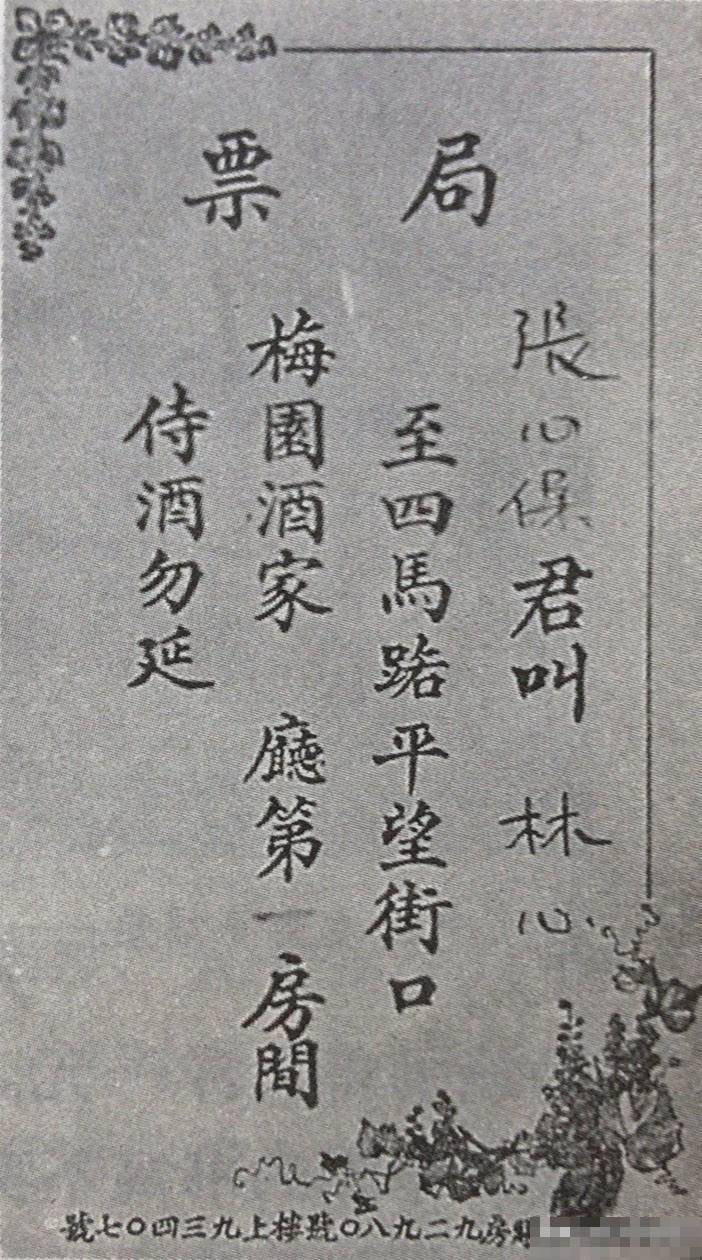 局票
張心保君叫 林心
至四馬路平望街口
梅園酒家 廳第一房間
侍酒勿延
房九二九八〇號樓上九三四〇七號